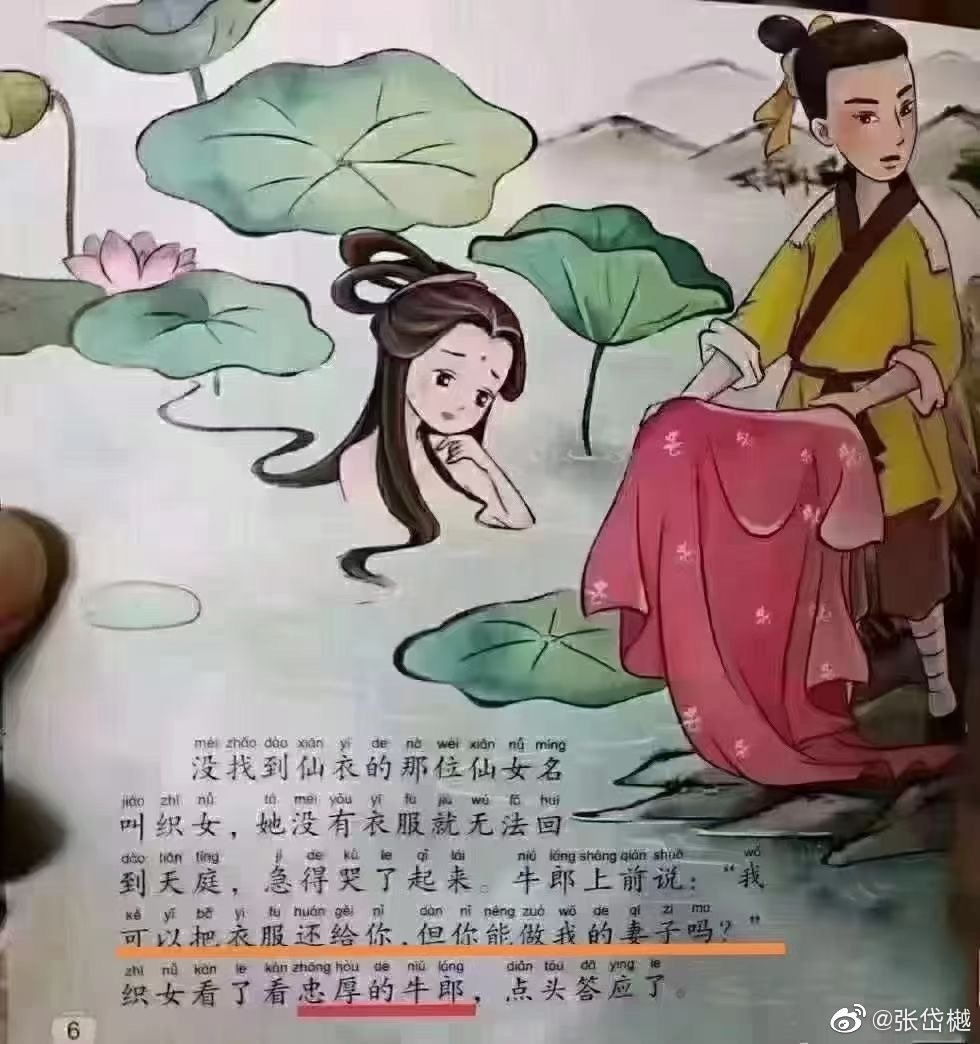 méi zhǎo dào xiān yī de nà wèi xiān nǚ míng
没找到仙衣的那位仙女名
jiào zhī nǚ tā méi yǒu yī fu jiù wú fǎ huí
叫织女，她没有衣服就无法回
dào tiān tíng jí de kū le qǐ lái niú láng shàng qián shuō wǒ
到天庭，急得哭了起来。牛郎上前说：“我
kě yǐ bǎ yī fu huán gěi nǐ dàn nǐ néng zuò wǒ de qī zi ma
可以把衣服还给你，但你能做我的妻子吗？”
zhī nǚ kàn le kàn zhōng hòu de niú láng diǎn tóu dā ying le
织女看了看忠厚的牛郎，点头答应了。
6
@张岱樾